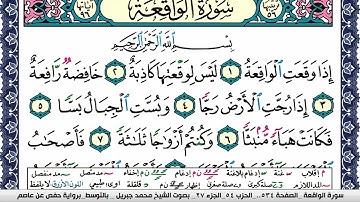 سُورَةُ الوَاقِعَةِ
بِسْمِ ٱللَّهِ ٱلرَّحْمَٰنِ ٱلرَّحِيمِ
إِذَا وَقَعَتِ ٱلْوَاقِعَةُ ١ لَيْسَ لِوَقْعَتِهَا كَاذِبَةٌ ٢ خَافِضَةٌ رَّافِعَةٌ
٣ إِذَا رُجَّتِ ٱلْأَرْضُ رَجًّا ٤ وَبُسَّتِ ٱلْجِبَالُ بَسًّا ٥
فَكَانَتْ هَبَآءً مُّنۢبَثًّا ٦ وَكُنتُمْ أَزْوَٰجًا ثَلَٰثَةً ٧ فَأَصْحَٰبُ
سورة الواقعة . الصفحة ٥٣٤... الحزب ٥٤ . الجزء ٢٧ . بصوت الشيخ محمد جبريل . بالتوسط . برواية حفص عن عاصم